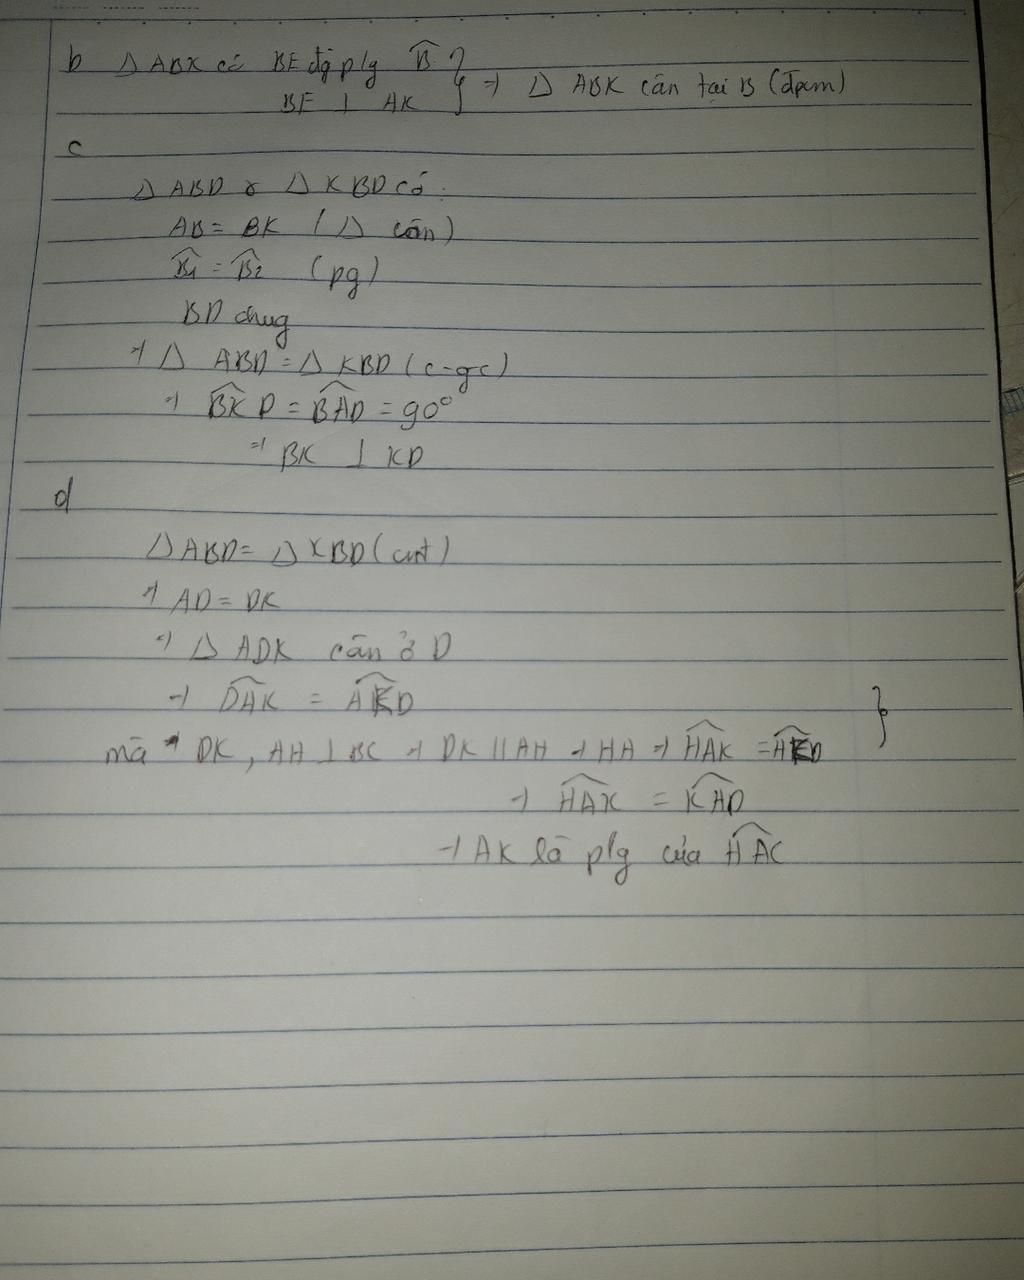 b △ ABK có BE đg plg B̂ } ⇒ △ ABK cân tại B (đpcm)
BE ⊥ AK
c
△ ABD & △ KBD có:
AB = BK (△ cân)
B̂₁ = B̂₂ (pg)
BD chug
⇒ △ ABD = △ KBD (c-gc)
⇒ BK̂D = BÂD = 90°
⇒ BK ⊥ KD
d
△ ABD = △ KBD (cmt)
⇒ AD = DK
⇒ △ ADK cân ở D
⇒ DÂK = AK̂D }
mà DK, AH ⊥ BC ⇒ DK // AH ⇒ HA ⇒ HÂK = AK̂D
⇒ HÂK = KÂD
⇒ AK là plg của HÂC